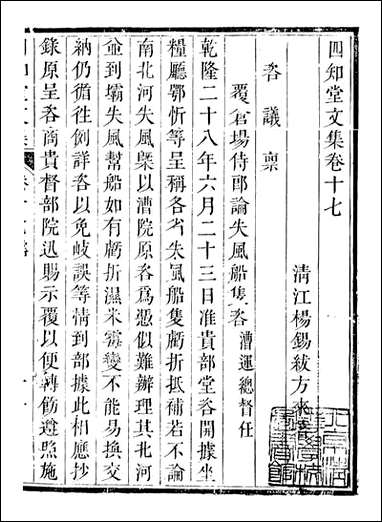 四知堂文集卷十七
清江楊錫紱方來
咨議稟
覆倉場侍郎論失風船隻咨 漕運總督任
乾隆二十八年六月二十三日准貴部堂咨開據坐
糧廳鄂忻等呈稱各省失風船隻虧折抵補若不論
南北河失風槩以漕院原咨為憑似難辦理其北河
並到壩失風幫船如有虧折濕米霉變不能易換交
納仍循徃例詳咨以免岐誤等情到部據此相應抄
錄原呈咨商貴督部院迅賜示覆以便轉飭遵照施